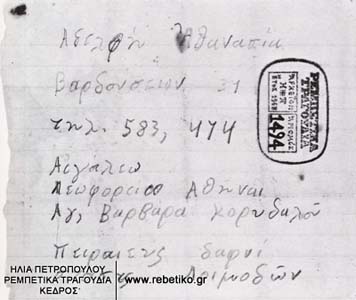 Αδελφή Αθανασία
Βαρδουσίων 31
τηλ. 583, 474
Αιγάλεω
Λεωφορείο Αθήναι
Αγ, Βαρβαρα Κορυδαλού
Πειραιευς δαφνί
ΡΕΜΠΕΤΙΚΑ
ΤΡΑΓΟΥΔΙΑ
1494
ΗΛΙΑ ΠΕΤΡΟΠΟΥΛΟΥ
ΡΕΜΠΕΤΙΚΑ ΤΡΑΓΟΥΔΙΑ
ΚΕΔΡΟΣ
www.rebetiko.gr